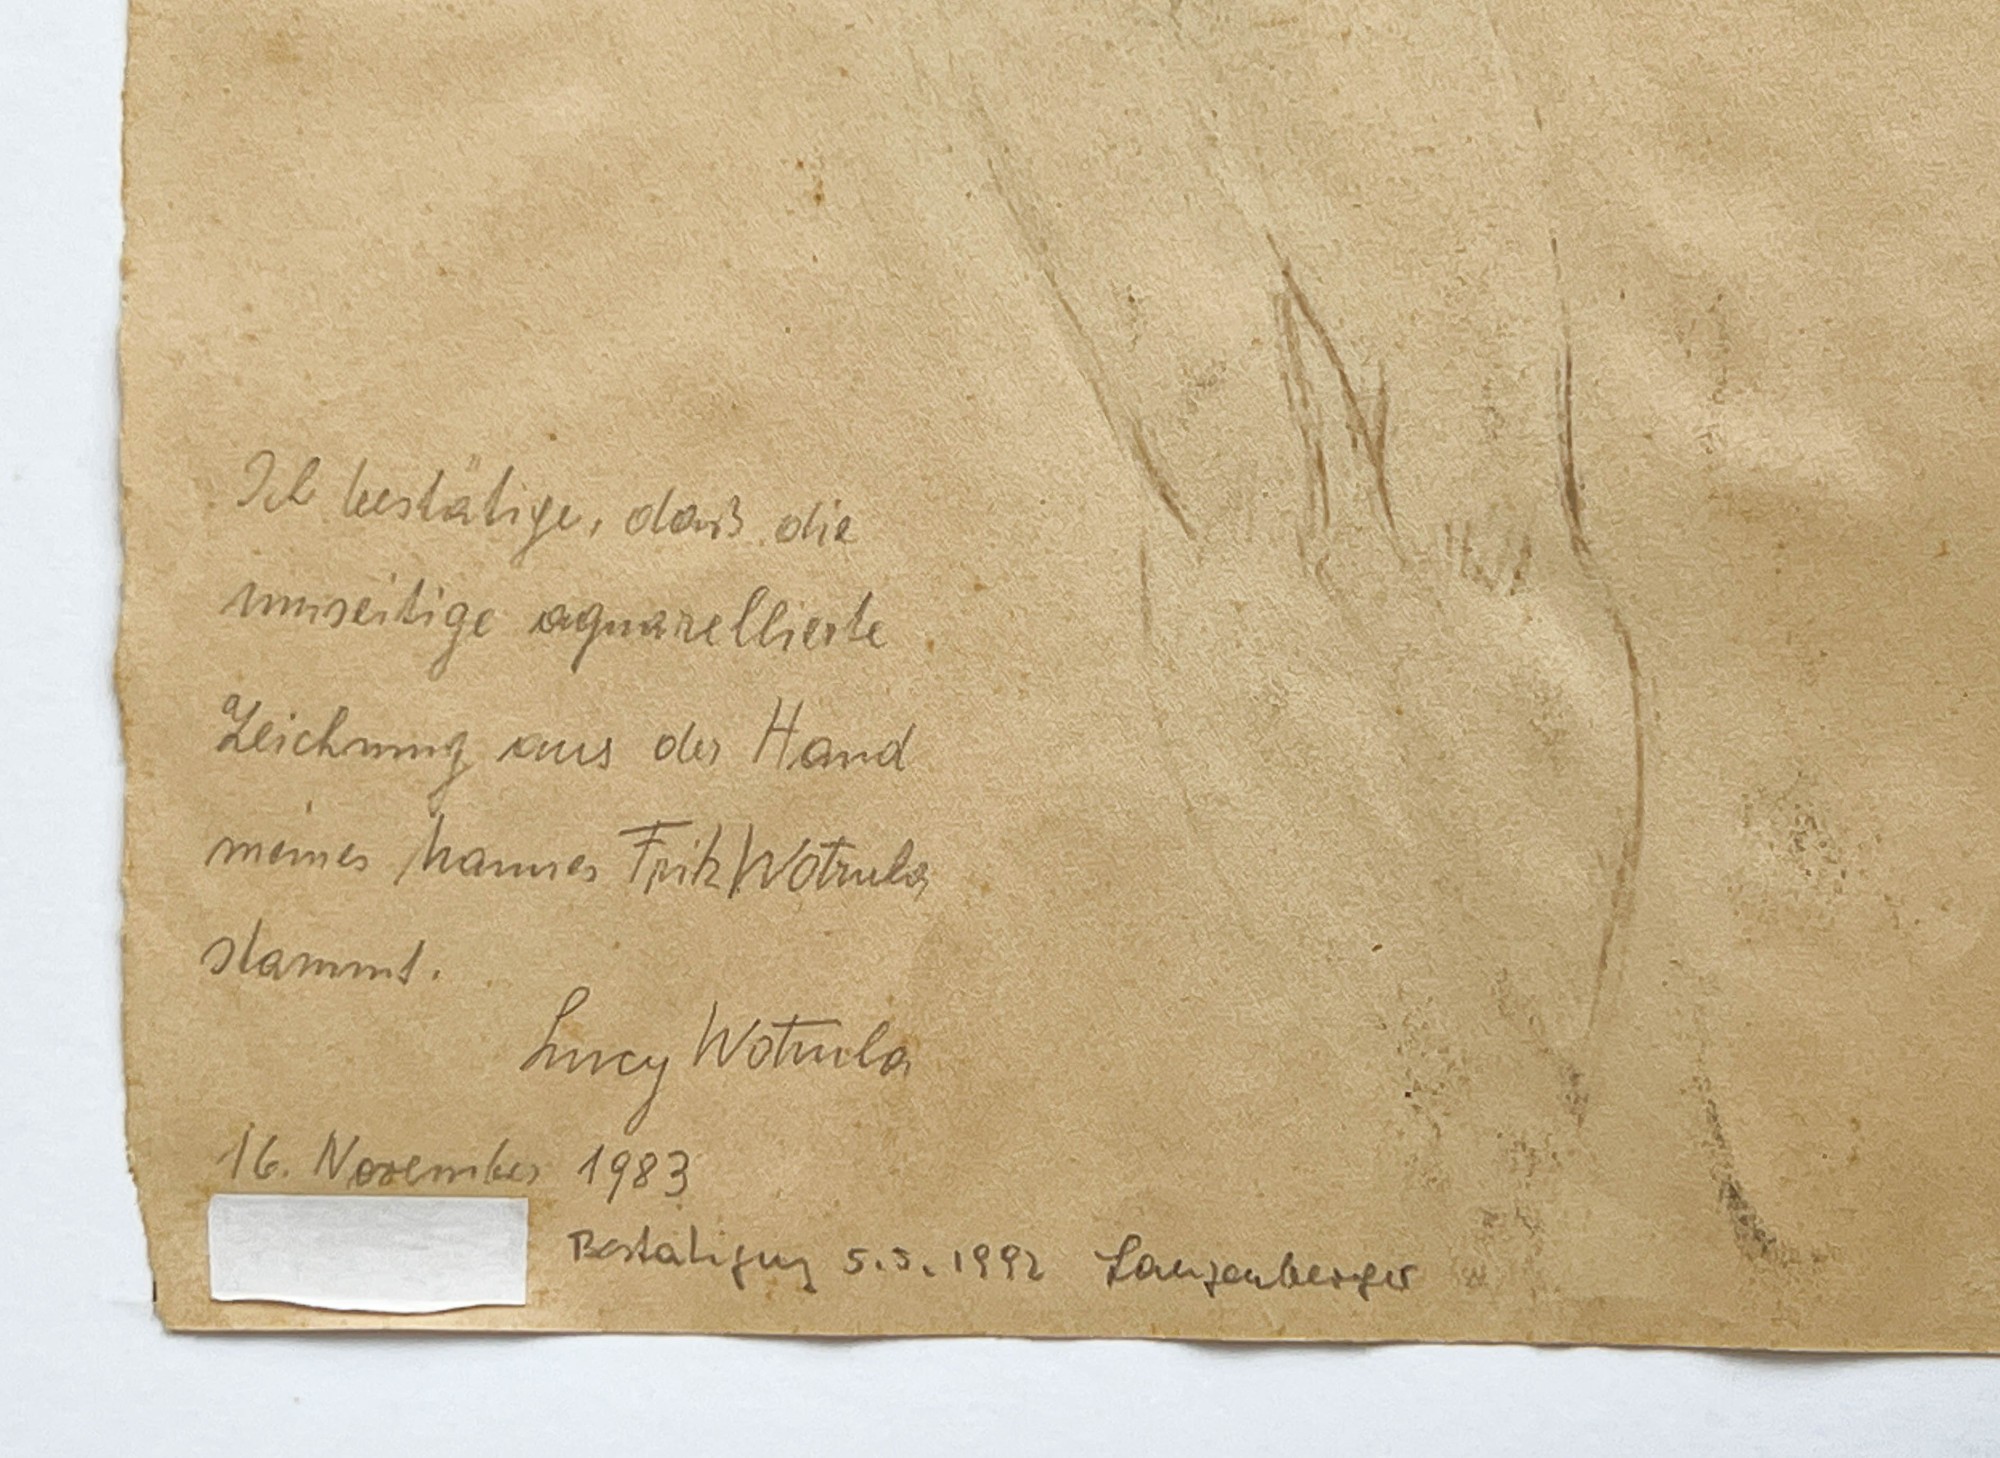 Ich bestätige, daß die
umseitige aquarellierte
Zeichnung aus der Hand
meines Mannes Fritz Wotruba
stammt.
Lucy Wotruba
16. November 1983
Bestätigung 5.5.1992 Lanzenberger